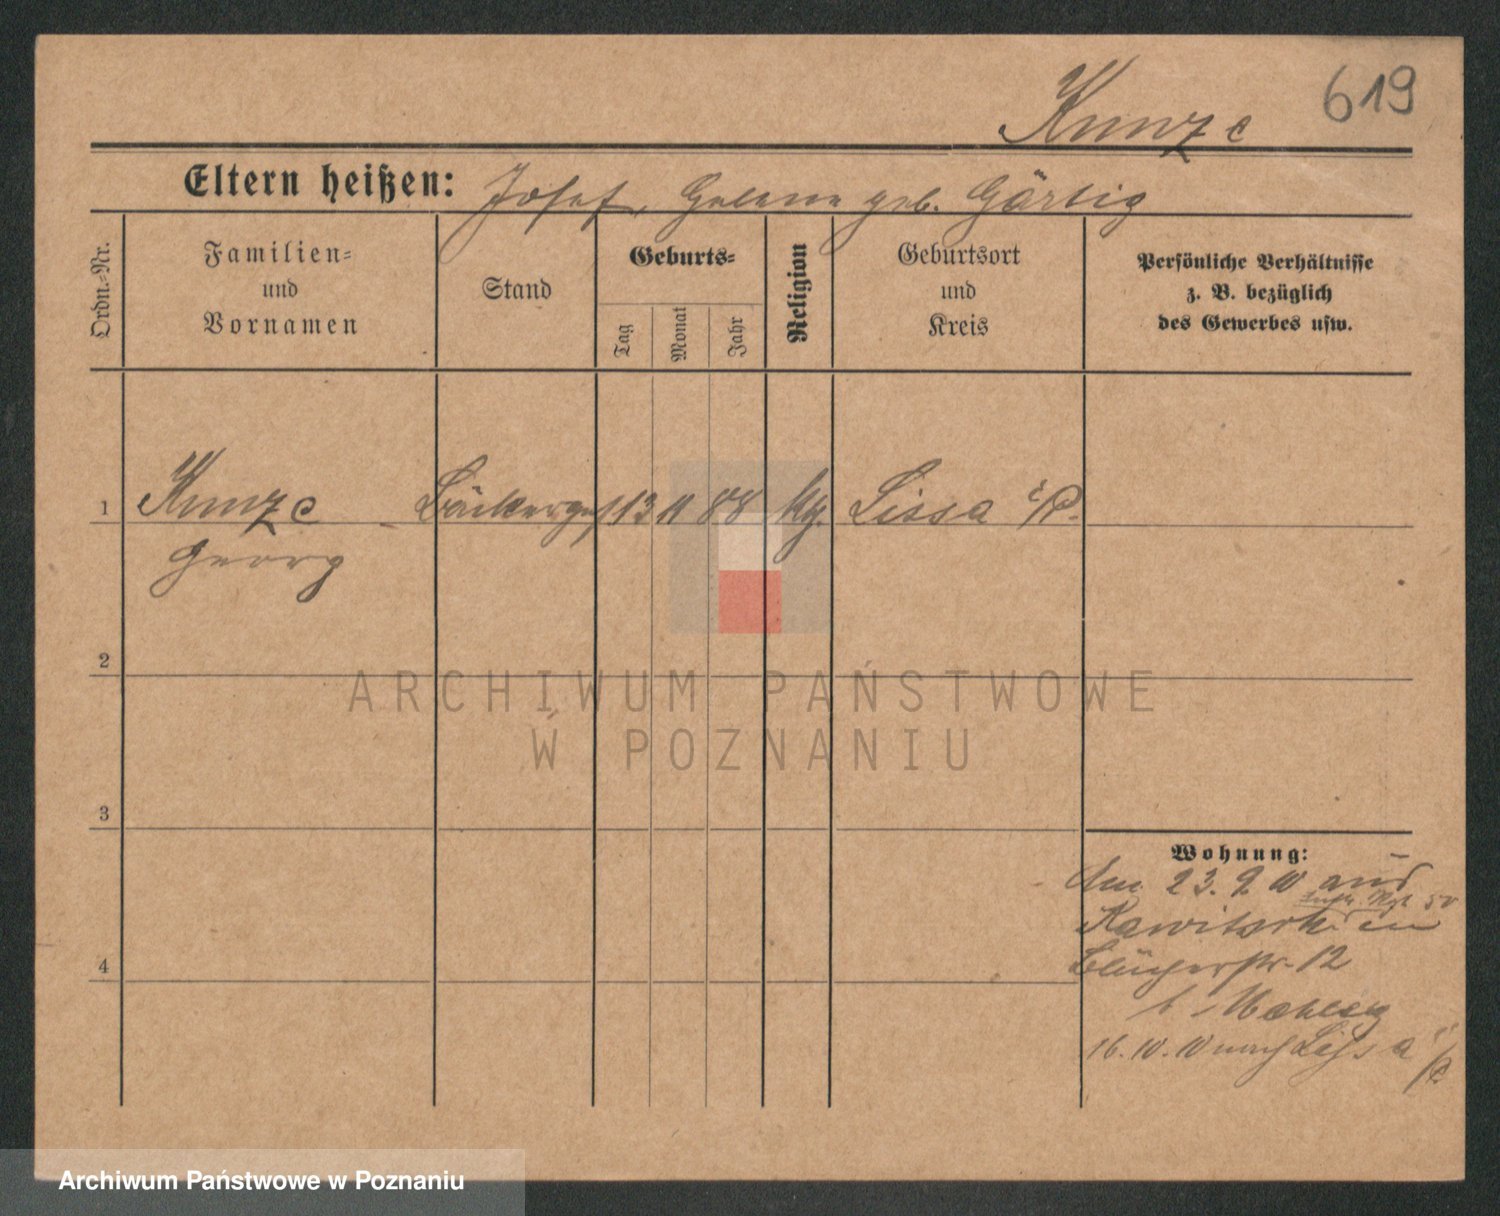 619
Kunze
Eltern heißen: Josef, Helene geb. Gärtig
Ordn.-Nr.
Familien-
und
Vornamen
Stand
Geburts-
Tag
Monat
Jahr
Religion
Geburtsort
und
Kreis
Persönliche Verhältnisse
z. B. bezüglich
des Gewerbes usw.
1 Kunze Bäckerges 13 11 88 Kg. Lissa i/P.
Georg
2
ARCHIWUM PAŃSTWOWE
W POZNANIU
3
Wohnung:
Am 23. 9 10 aus
Rawitsch in
4
Blücherstr. 12
b.
16. 10. 10 nach Lissa i/P
Archiwum Państwowe w Poznaniu